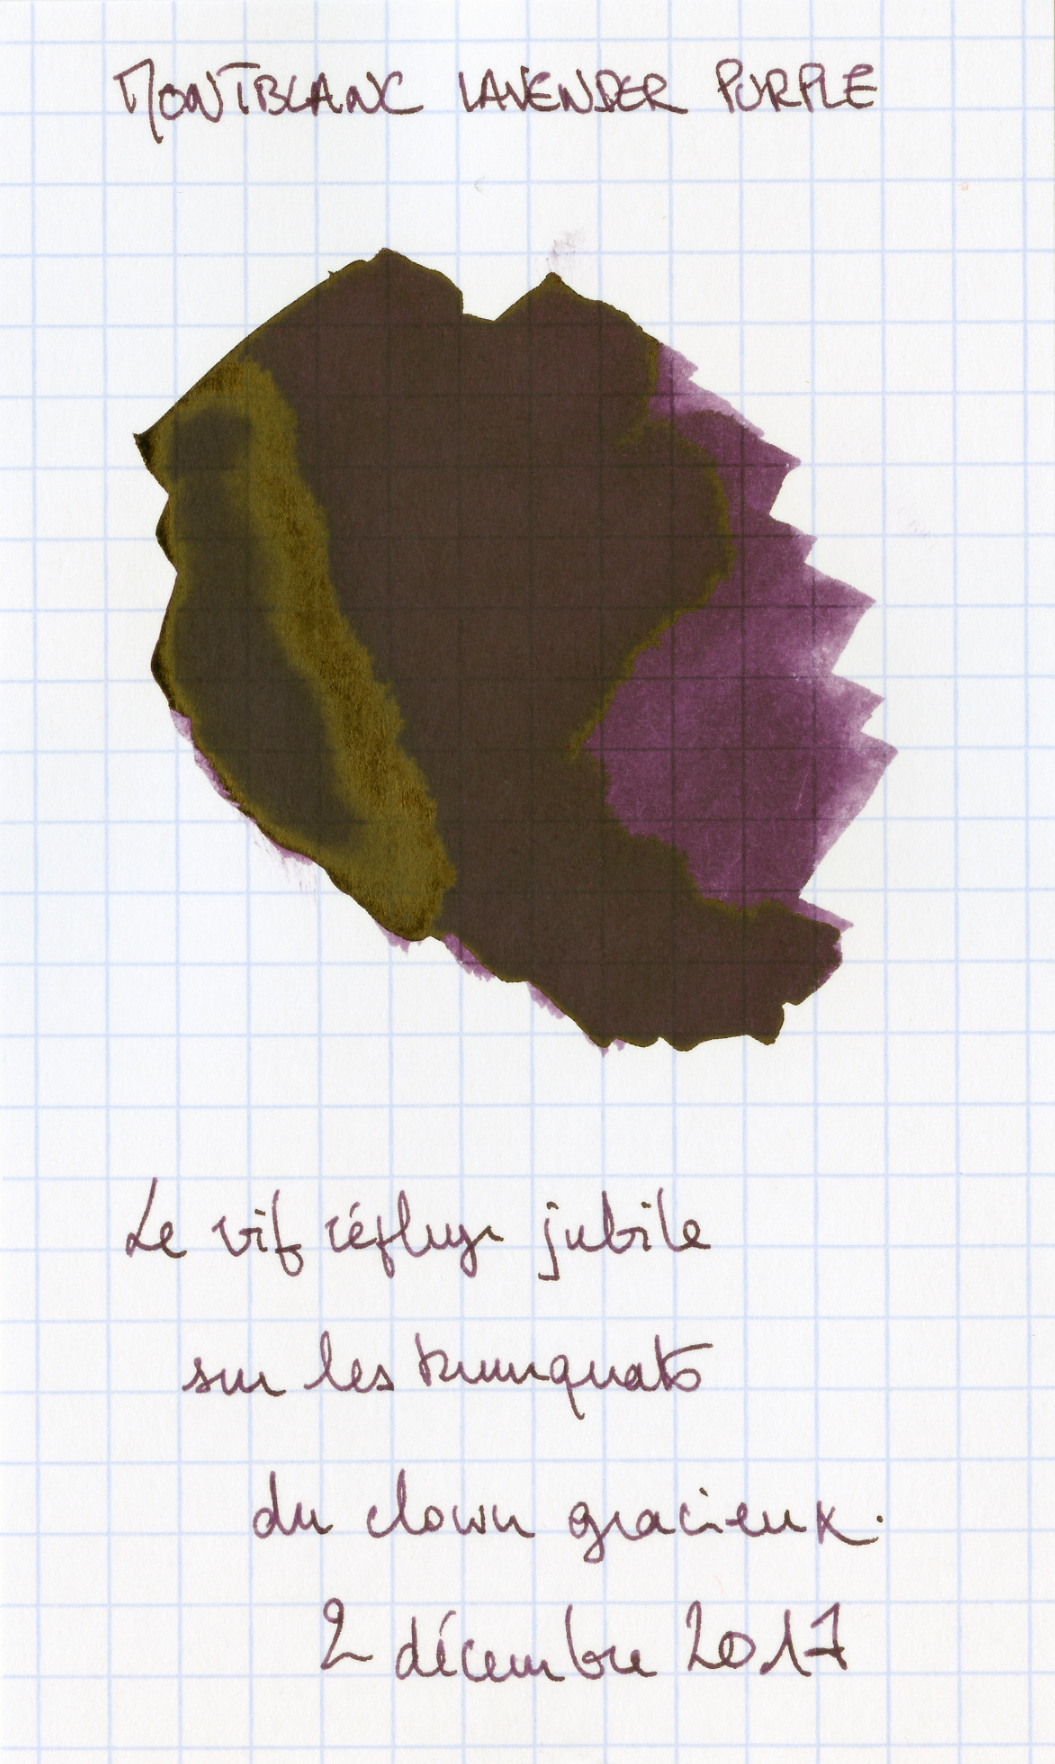 MONTBLANC LAVENDER PURPLE
Le vif réfluge jubile
sur les kumquats
du clown gracieux.
2 décembre 2017